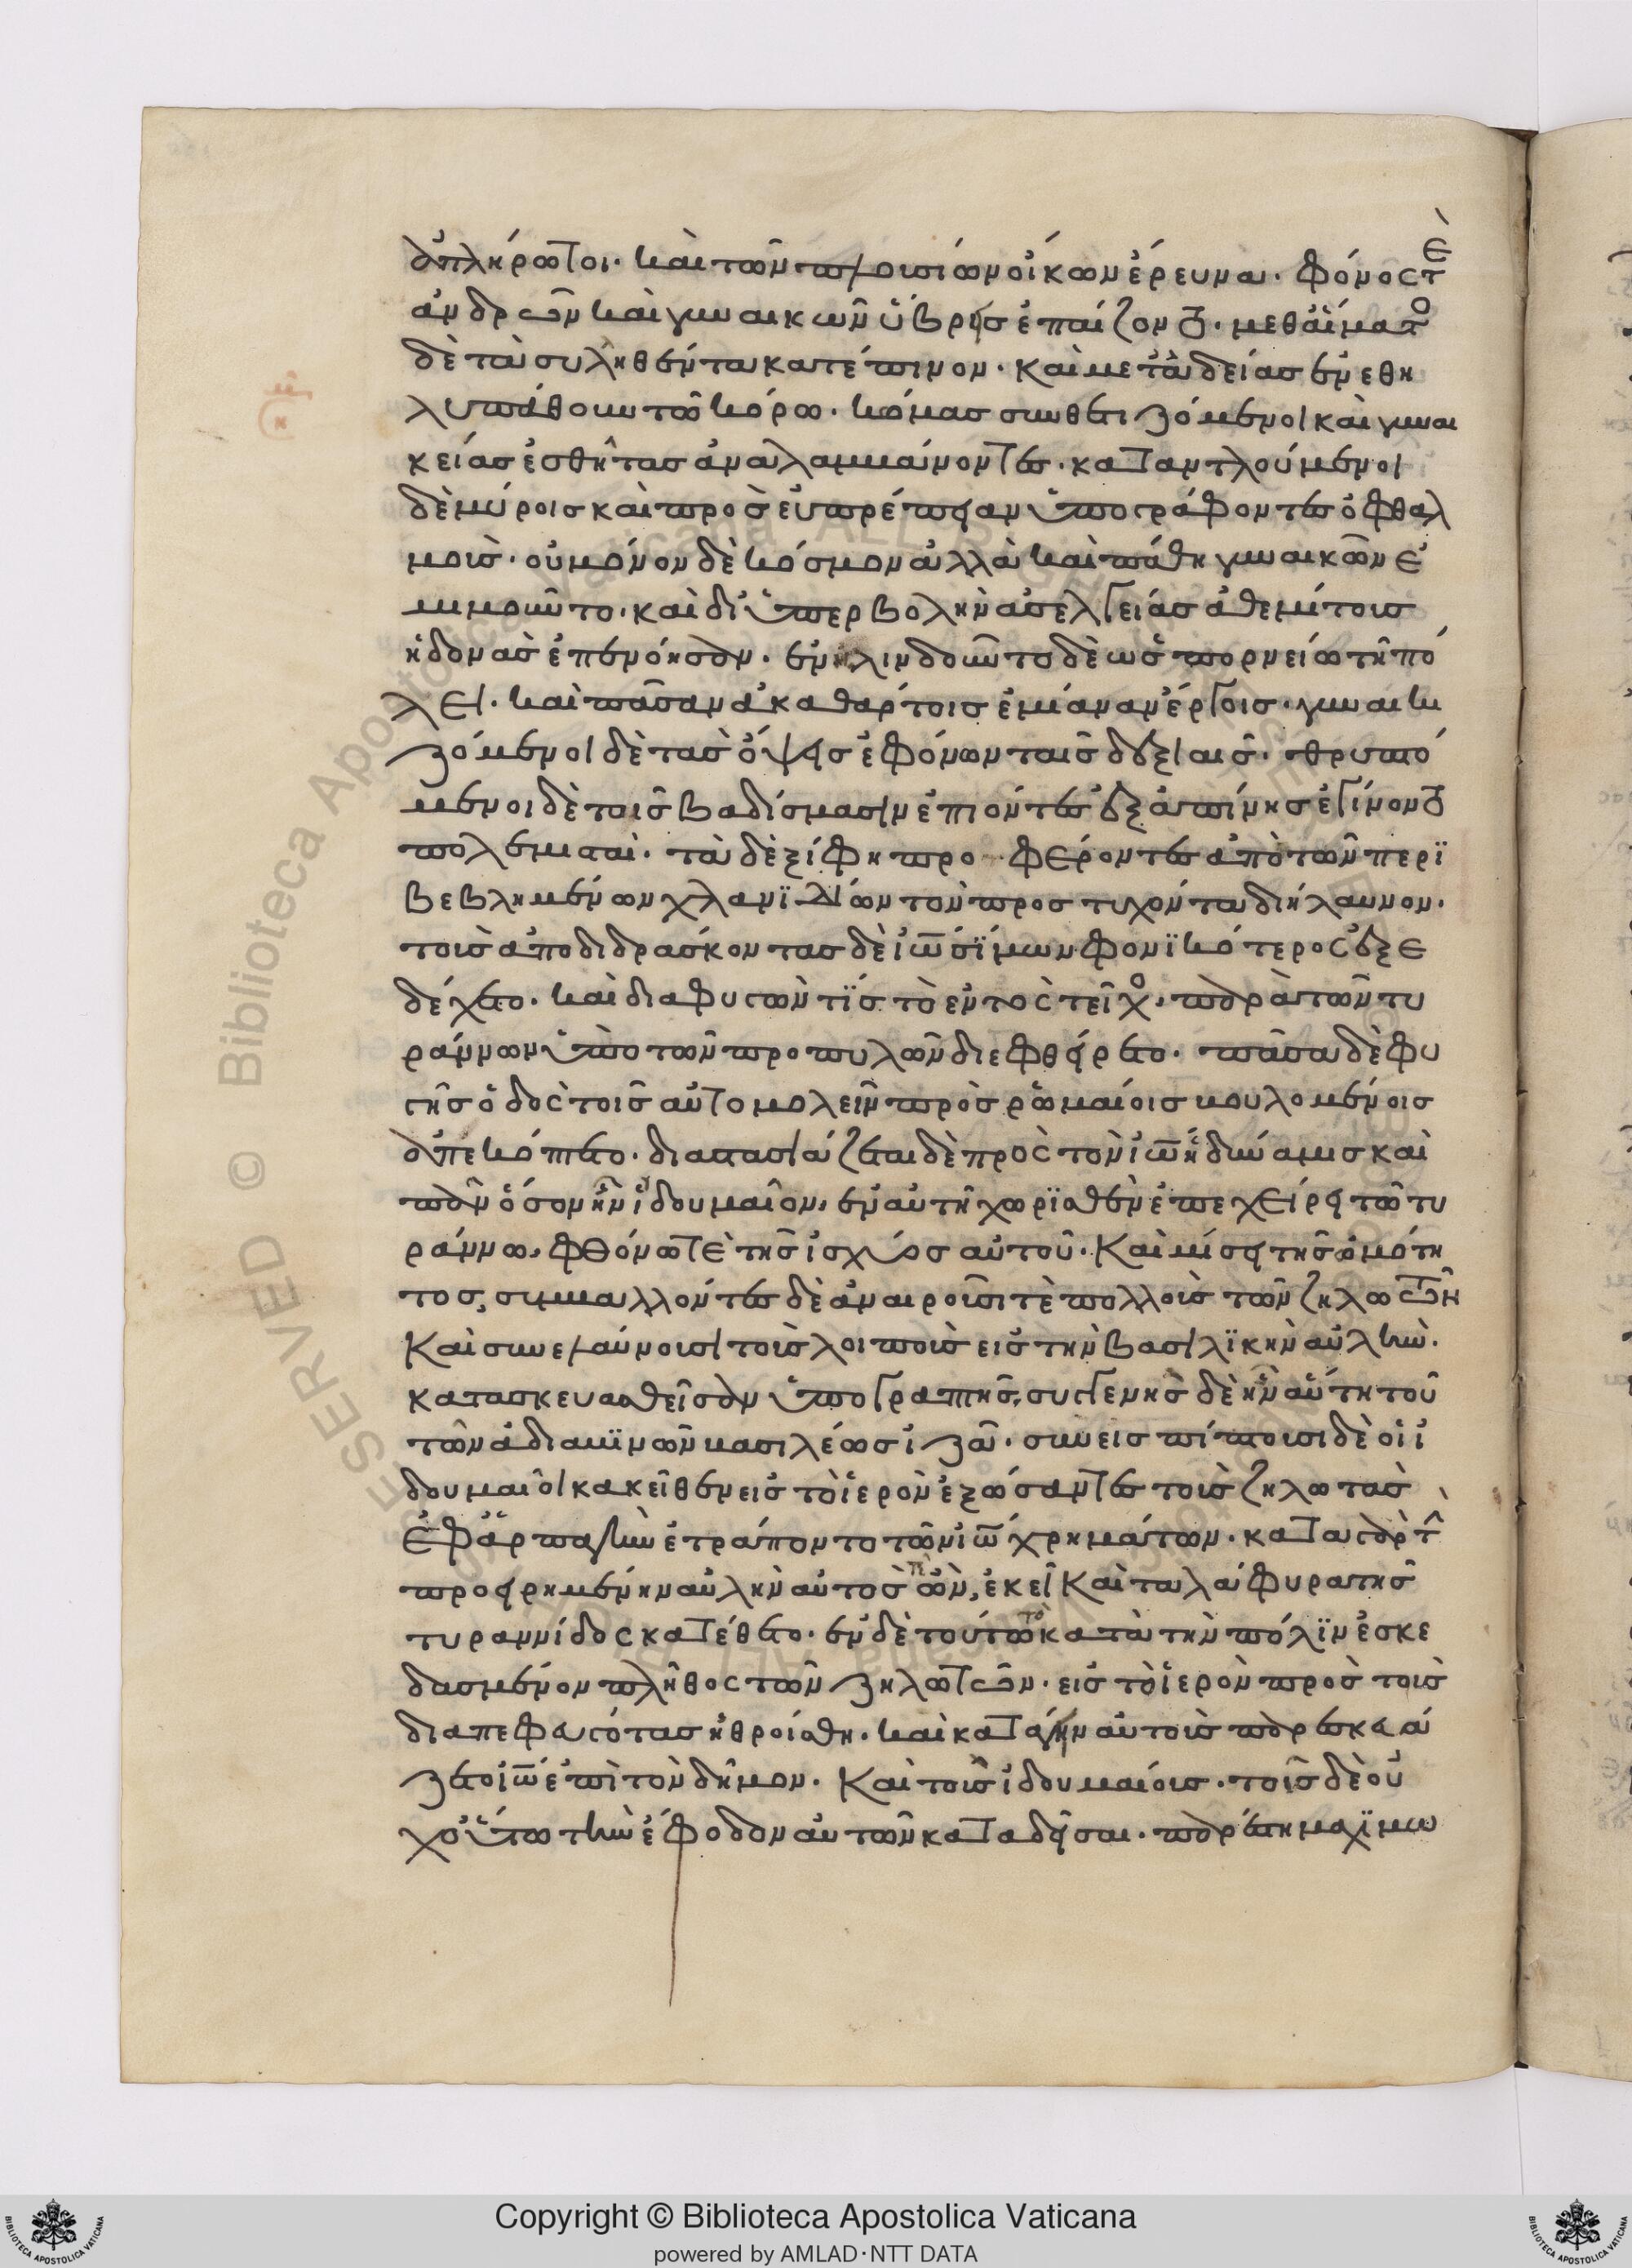 ἀπλήρωτοι· καὶ τῶν πλουσίων οἴκων ἔρευνα· φόνος τὲ
ἀνδρῶν καὶ γυναικῶν ὕβρεις ἐπαίζοντο· μεθ' αἵματος
δὲ τὰ συληθέντα κατέπινον· καὶ μετὰ ἀδείας ἐνεθη
λυπάθουν τῶ κόρω· κόμας συνθετιζόμενοι καὶ γυναι
κείας ἐσθῆτας ἀναλαμβάνοντες· καταντλούμενοι
δὲ μύροις καὶ πρὸς εὐπρέπειαν ὑπογράφοντες ὀφθαλ
μοὺς· οὐ μόνον δὲ κόσμον ἀλλὰ καὶ πάθη γυναικῶν ἐ
μιμοῦντο· καὶ δι' ὑπερβολὴν ἀσελγείας ἀθεμίτους
ἡδονὰς ἐπενόησαν· ἐνηλινδοῦντο δὲ ὡς πορνείω τῆ πό
λει· καὶ πᾶσαν ἀκαθάρτοις ἐμίαναν ἔργοις· γυναικι
ζόμενοι δὲ τὰς ὄψεις ἐφόνων ταῖς δεξιαῖς· θρυπτό
μενοι δὲ τοῖς βαδίσμασιν ἐπιόντες ἐξαπίνης ἐγίνοντο
πολεμισταί· τὰ δὲ ξίφη προφέροντες ἀπὸ τῶν περϊ
βεβλημένων χλανϊδίων τὸν προστυχόντα διήλαυνον·
τοὺς ἀποδιδράσκοντας δὲ ἰω σίμων φονϊκότερος ἐξε
δέχετο· καὶ διαφυγών τϊς τὸ ἐντὸς τεῖχος, παρὰ τῶν τυ
ράννων ὑπὸ τῶν προπυλῶν διεφθείρετο· πᾶσα δὲ φυ
γῆς ὁδὸς τοῖς αὐτομολεῖν πρὸς ῥωμαίοις βουλομένοις
ἀπεκόπτετο· διαστασιάζεται δὲ πρὸς τὸν ἰω ἡ δύναμις καὶ
πᾶν ὅσον ἦν ἰδουμαῖον, ἐν αὐτῆ χωρϊσθὲν ἐπεχείρει τῶ τυ
ράννω, φθόνω τὲ τῆς ἰσχύος αὐτοῦ· καὶ μίσει τῆς ὠμότη
τος, συμβαλλόντες δὲ ἀναιροῦσι τὲ πολλοὺς τῶν ζηλωτῶν
καὶ συνελαύνουσι τοὺς λοιποὺς εἰς τὴν βασιλϊκὴν αὐλὴν·
κατασκευασθεῖσαν ὑπὸ γραπτῆς, συγγενὴς δὲ ἦν αὕτη τοῦ
τῶν ἀδιαβϊνῶν βασιλέως ἰζᾶ· συνεισπίπτουσι δὲ οἱ ἰ
δουμαῖοι κακεῖθεν εἰς τὸ ἱερὸν ἐξώσαντες τοὺς ζηλωτὰς
ἐφ' ἁρπαγὴν ἐτράποντο τῶν ἰω χρημάτων· κατὰ γὰρ τὴν
προειρημένην αὐλὴν αὐτός τε ὢν, ἐκεῖ καὶ τὰ λάφυρα τῆς
τυραννίδος κατέθετο· ἐν δὲ τούτω τὸ κατὰ τὴν πόλϊν ἐσκε
δασμένον πλῆθος τῶν ζηλωτῶν· εἰς τὸ ἱερὸν πρὸς τοὺς
διαπεφευγότας ἠθροίσθη· καὶ κατάγειν αὐτοὺς παρεσκευά
ζετο ἰω ἐπὶ τὸν δῆμον· καὶ τοὺς ἰδουμαίους· τοῖς δὲ οὐ
χ οὕτω τὴν ἔφοδον αὐτῶν καταδεῖσαι· παρέστη μαχϊμω